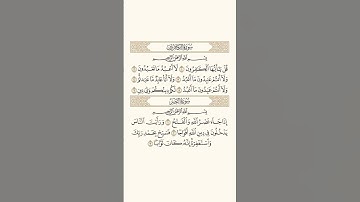 سُورَةُ الكَافِرُونَ
بِسْمِ اللَّهِ الرَّحْمَٰنِ الرَّحِيمِ
قُلْ يَا أَيُّهَا الْكَافِرُونَ ١ لَا أَعْبُدُ مَا تَعْبُدُونَ ٢
وَلَا أَنْتُمْ عَابِدُونَ مَا أَعْبُدُ ٣ وَلَا أَنَا عَابِدٌ مَا عَبَدتُّمْ ٤
وَلَا أَنْتُمْ عَابِدُونَ مَا أَعْبُدُ ٥ لَكُمْ دِينُكُمْ وَلِيَ دِينِ ٦
سُورَةُ النَّصْرِ
بِسْمِ اللَّهِ الرَّحْمَٰنِ الرَّحِيمِ
إِذَا جَاءَ نَصْرُ اللَّهِ وَالْفَتْحُ ١ وَرَأَيْتَ النَّاسَ
يَدْخُلُونَ فِي دِينِ اللَّهِ أَفْوَاجًا ٢ فَسَبِّحْ بِحَمْدِ رَبِّكَ
وَاسْتَغْفِرْهُ إِنَّهُ كَانَ تَوَّابًا ٣